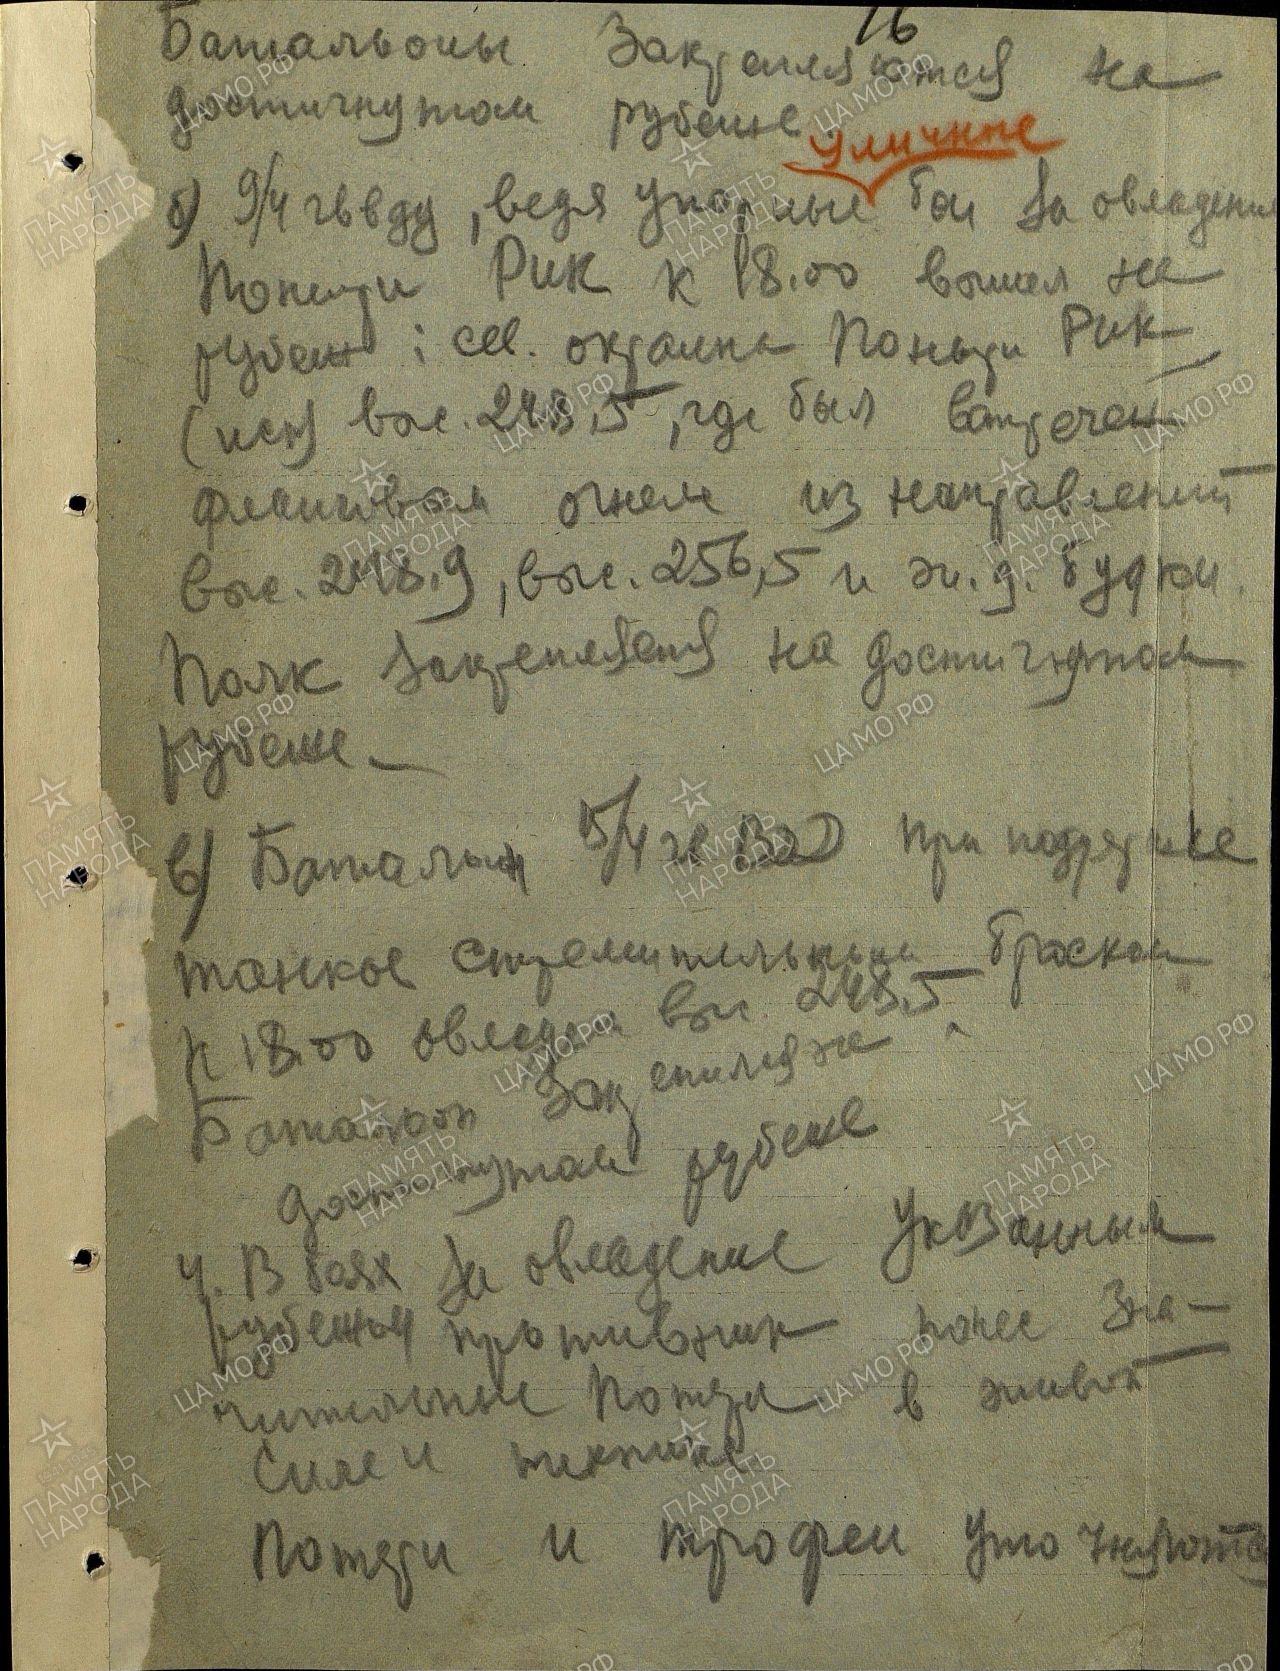 16
Батальоны Закрепляются на
достигнутом рубеже
уличные
б) 9/4 гв вду, ведя упорные бои За овладение
Поньри Рик к 18.00 вышел на
рубеж : сев. окраина Поньри Рик
(иск) выс. 248,5, где был встречен
фланговым огнем из направлений
выс. 248.9, выс. 256,5 и ж.д. будки.
Полк Закрепляется на достигнутом
рубеже
в) Батальон 15/4 гв ВдД при поддержке
танков стремительным броском
к 18.00 овладел выс. 248.5.
Батальон Закрепился на
достигнутом рубеже
4. В боях За овладение Указанным
рубежом противник понес Зна-
чительные Потери в живой
Силе и технике
Потери и трофеи уточняются
ЦА МО РФ
ПАМЯТЬ НАРОДА